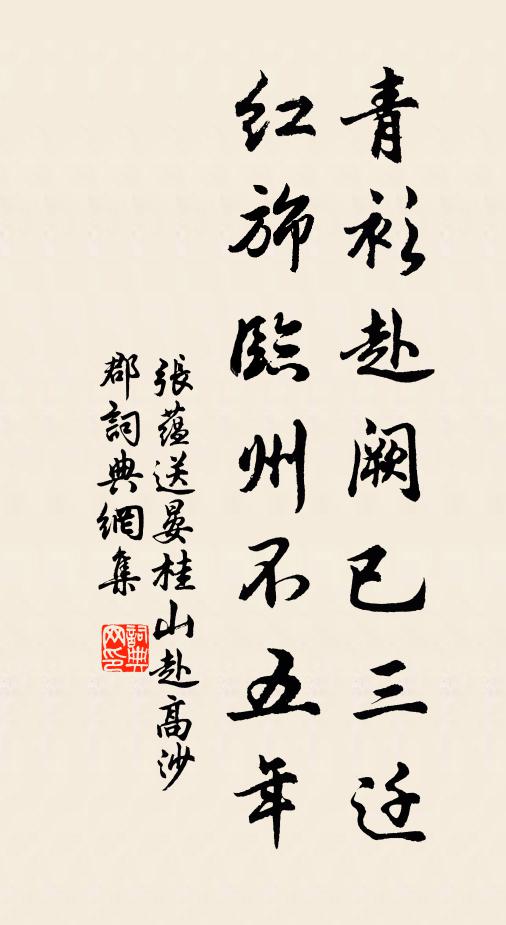 青衫赴闕已三迁
紅旆臨州不五年
張蘊送晏桂山赴高沙
郡詞典網集
詞典
网印